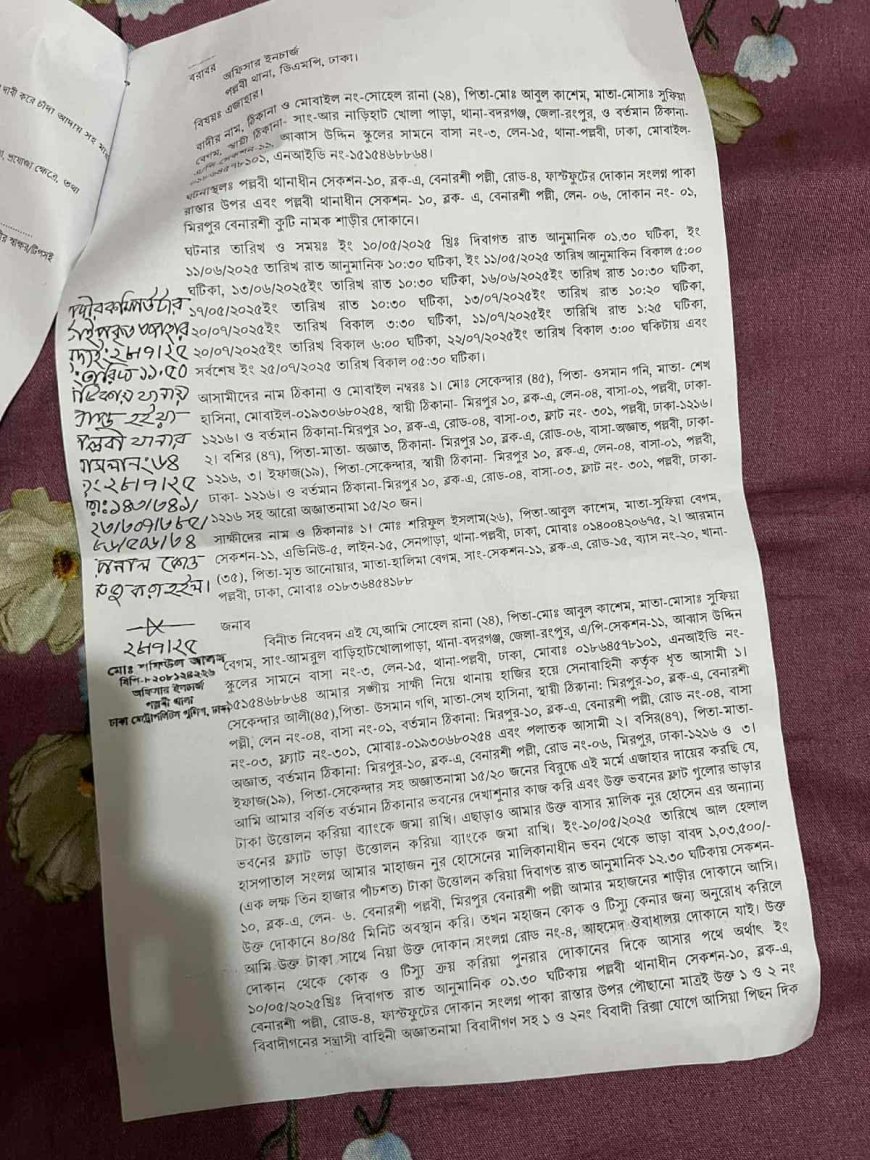 দাবী করে চাঁদা আদায় সহ
প্রযোজ্য ক্ষেত্রে, তথ্য
স্বাক্ষর/টিপসই
বরাবর
অফিসার ইনচার্জ
পল্লবী থানা, ডিএমপি, ঢাকা।
বিষয়ঃ এজাহার।
বাদীর নাম, ঠিকানা ও মোবাইল নং-সোহেল রানা (২৪), পিতা-মোঃ আবুল কাশেম, মাতা-মোসাঃ সুফিয়া
বেগম, স্থায়ী ঠিকানা- সাং-আর নাড়িহাট খোলা পাড়া, থানা-বদরগঞ্জ, জেলা-রংপুর, ও বর্তমান ঠিকানা-
এ/পি সেকশন-১১, আব্বাস উদ্দিন স্কুলের সামনে বাসা নং-৩, লেন-১৫, থানা-পল্লবী, ঢাকা, মোবাইল-
এনআইডি নং-১৫১৫৪৬৮৮৬৪।
ঘটনাস্থলঃ পল্লবী থানাধীন সেকশন-১০, ব্লক-এ, বেনারশী পল্লী, রোড-৪, ফাস্টফুটের দোকান সংলগ্ন পাকা
রাস্তার উপর এবং পল্লবী থানাধীন সেকশন- ১০, ব্লক- এ, বেনারশী পল্লী, লেন- ০৬, দোকান নং- ০১,
মিরপুর বেনারশী কুটি নামক শাড়ীর দোকানে।
ঘটনার তারিখ ও সময়ঃ ইং ১০/০৫/২০২৫ খ্রিঃ দিবাগত রাত আনুমানিক ০১.৩০ ঘটিকা, ইং
১১/০৬/২০২৫ তারিখ রাত আনুমানিক ১০:৩০ ঘটিকা, ইং ১১/০৫/২০২৫ তারিখ আনুমাকিন বিকাল ৫:০০
ঘটিকা, ১৩/০৬/২০২৫ইং তারিখ রাত ১০:৩০ ঘটিকা, ১৬/০৬/২০২৫ইং তারিখ রাত ১০:৩০ ঘটিকা,
১৭/০৫/২০২৫ইং তারিখ রাত ১০:৩০ ঘটিকা, ১৩/০৭/২০২৫ইং তারিখ রাত ১০:২০ ঘটিকা,
২০/০৭/২০২৫ইং তারিখ বিকাল ৩:৩০ ঘটিকা, ১১/০৭/২০২৫ইং তারিখি রাত ১:২৫ ঘটিকা,
২০/০৭/২০২৫ইং তারিখ বিকাল ৬:০০ ঘটিকা, ২২/০৭/২০২৫ইং তারিখ বিকাল ৩:০০ ঘকিটায় এবং
সর্বশেষ ইং ২৫/০৭/২০২৫ তারিখ বিকাল ০৫:৩০ ঘটিকা।
আসামীদের নাম ঠিকানা ও মোবাইল নম্বরঃ ১। মোঃ সেকেন্দার (৪৫), পিতা- ওসমান গনি, মাতা- শেখ
হাসিনা, মোবাইল-০১৯৩০৬৮০২৫৪, স্থায়ী ঠিকানা- মিরপুর ১০, ব্লক-এ, লেন-০৪, বাসা-০১, পল্লবী, ঢাকা-
১২১৬। ও বর্তমান ঠিকানা-মিরপুর ১০, ব্লক-এ, রোড-০৪, বাসা-০৩, ফ্লাট নং- ৩০১, পল্লবী, ঢাকা-১২১৬।
২। বশির (৪৭), পিতা-মাতা- অজ্ঞাত, ঠিকানা- মিরপুর ১০, ব্লক-এ, রোড-০৬, বাসা-অজ্ঞাত, পল্লবী, ঢাকা-
১২১৬, ৩। ইফাজ(১৯), পিতা-সেকেন্দার, স্থায়ী ঠিকানা- মিরপুর ১০, ব্লক-এ, লেন-০৪, বাসা-০১, পল্লবী,
ঢাকা- ১২১৬। ও বর্তমান ঠিকানা-মিরপুর ১০, ব্লক-এ, রোড-০৪, বাসা-০৩, ফ্লাট নং- ৩০১, পল্লবী, ঢাকা-
১২১৬ সহ আরো অজ্ঞাতনামা ১৫/২০ জন।
সাক্ষীদের নাম ও ঠিকানাঃ ১। মোঃ শরিফুল ইসলাম(২৬), পিতা-আবুল কাশেম, মাতা-সুফিয়া বেগম,
সেকশন-১১, এভিনিউ-৫, লাইন-১৫, সেনপাড়া, থানা-পল্লবী, ঢাকা, মোবাঃ ০১৪০০৪২০৬৭৫, ২। আরমান
(৩৫), পিতা-মৃত আনোয়ার, মাতা-হালিমা বেগম, সাং-সেকশন-১১, ব্লক-এ, রোড-১৫, বাস নং-২০, থানা-
পল্লবী, ঢাকা, মোবাঃ ০১৮৩৬৪৫৪১৮৮
থানায়
পল্লবী থানার
২৮/৭/২৫
মোঃ শফিউল আলম
বিপি-৮২০৮১২৪২২৬
অফিসার ইনচার্জ
পল্লবী থানা
ঢাকা মেট্রোপলিটন পুলিশ, ঢাকা
জনাব
বিনীত নিবেদন এই যে,আমি সোহেল রানা (২৪), পিতা-মোঃ আবুল কাশেম, মাতা-মোসাঃ সুফিয়া
বেগম, সাং-আমরুল বাড়িহাটখোলাপাড়া, থানা-বদরগঞ্জ, জেলা-রংপুর, এ/পি-সেকশন-১১, আব্বাস উদ্দিন
স্কুলের সামনে বাসা নং-৩, লেন-১৫, থানা-পল্লবী, ঢাকা, মোবাঃ ০১৮৬৪৫৭৮১০১, এনআইডি নং-
১৫১৫৪৬৮৮৬৪ আমার সঙ্গীয় সাক্ষী নিয়ে থানায় হাজির হয়ে সেনাবাহিনী কর্তৃক ধৃত আসামী ১।
সেকেন্দার আলী(৪৫),পিতা- উসমান গণি, মাতা-সেখ হাসিনা, স্থায়ী ঠিকানা: মিরপুর-১০, ব্লক-এ, বেনারশী
পল্লী, লেন নং-০৪, বাসা নং-০১, বর্তমান ঠিকানা: মিরপুর-১০, ব্লক-এ, বেনারশী পল্লী, রোড নং-০৪, বাসা
নং-০৩, ফ্ল্যাট নং-৩০১, মোবাঃ-০১৯৩০৬৮০২৫৪ এবং পলাতক আসামী ২। বসির(৪৭), পিতা-মাতা-
অজ্ঞাত, বর্তমান ঠিকানা: মিরপুর-১০, ব্লক-এ, বেনারশী পল্লী, রোড নং-০৬, মিরপুর, ঢাকা-১২১৬ ও ৩।
ইফাজ(১৯), পিতা-সেকেন্দার সহ অজ্ঞাতনামা ১৫/২০ জনের বিরুদ্ধে এই মর্মে এজাহার দায়ের করছি যে,
আমি আমার বর্ণিত বর্তমান ঠিকানার ভবনের দেখাশুনার কাজ করি এবং উক্ত ভবনের ফ্লাট গুলোর ভাড়ার
টাকা উত্তোলন করিয়া ব্যাংকে জমা রাখি। এছাড়াও আমার উক্ত বাসার মালিক নুর হোসেন এর অন্যান্য
ভবনের ফ্ল্যাট ভাড়া উত্তোলন করিয়া ব্যাংকে জমা রাখি। ইং-১০/০৫/২০২৫ তারিখে আল হেলাল
হাসপাতাল সংলগ্ন আমার মাহাজন নুর হোসেনের মালিকানাধীন ভবন থেকে ভাড়া বাবদ ১,০৩,৫০০/-
(এক লক্ষ তিন হাজার পাঁচশত) টাকা উত্তোলন করিয়া দিবাগত রাত আনুমানিক ১২.৩০ ঘটিকায় সেকশন-
১০, ব্লক-এ, লেন- ৬. বেনারশী পল্লবী, মিরপুর বেনারশী পল্লী আমার মহাজনের শাড়ীর দোকানে আসি।
উক্ত দোকানে ৪০/৪৫ মিনিট অবস্থান করি। তখন মহাজন কোক ও টিস্যু কেনার জন্য অনুরোধ করিলে
আমি উক্ত টাকা সাথে নিয়া উক্ত দোকান সংলগ্ন রোড নং-৪, আহমেদ ঔবাধালয় দোকানে যাই। উক্ত
দোকান থেকে কোক ও টিস্যু ক্রয় করিয়া পুনরার দোকানের দিকে আসার পথে অর্থাৎ ইং
১০/০৫/২০২৫খ্রিঃ দিবাগত রাত আনুমানিক ০১.৩০ ঘটিকায় পল্লবী থানাধীন সেকশন-১০, ব্লক-এ,
বেনারশী পল্লী, রোড-৪, ফাস্টফুটের দোকান সংলগ্ন পাকা রাস্তার উপর পৌছানো মাত্রই উক্ত ১ ও ২ নং
বিবাদীগনের সন্ত্রাসী বাহিনী অজ্ঞাতনামা বিবাদীগণ সহ ১ ও ২নং বিবাদী রিক্সা যোগে আসিয়া পিছন দিক